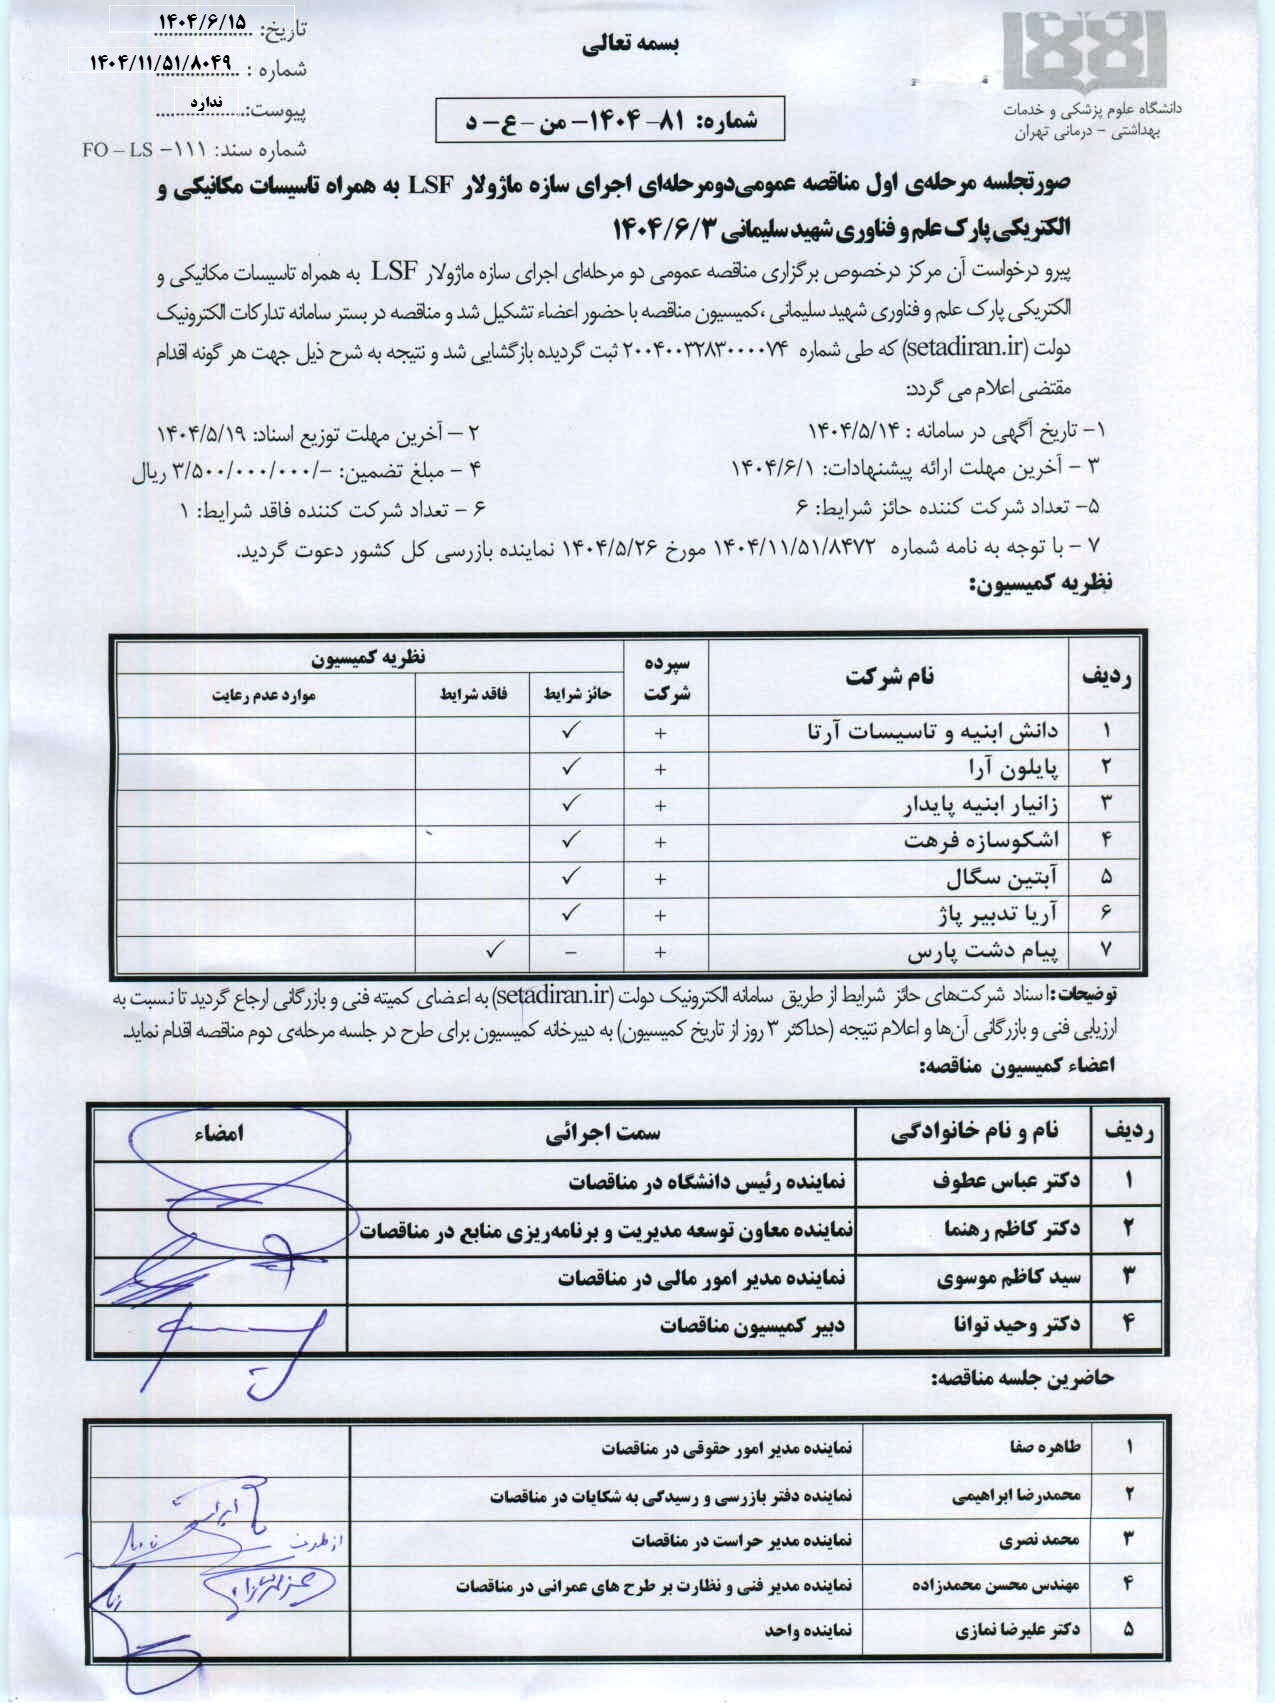 بسمه تعالی
تاریخ: ۱۴۰۴/۶/۱۵
شماره : ۱۴۰۴/۱۱/۵۱/۸۰۴۹
پیوست: ندارد
شماره سند: FO – LS –۱۱۱
دانشگاه علوم پزشکی و خدمات
بهداشتی – درمانی تهران
شماره: ۸۱- ۱۴۰۴- من – ع – د
صورتجلسه مرحله‌ی اول مناقصه عمومی‌دومرحله‌ای اجرای سازه ماژولار LSF به همراه تاسیسات مکانیکی و
الکتریکی پارک علم و فناوری شهید سلیمانی ۱۴۰۴/۶/۳
پیرو درخواست آن مرکز درخصوص برگزاری مناقصه عمومی دو مرحله‌ای اجرای سازه ماژولار LSF به همراه تاسیسات مکانیکی و
الکتریکی پارک علم و فناوری شهید سلیمانی ،کمیسیون مناقصه با حضور اعضاء تشکیل شد و مناقصه در بستر سامانه تدارکات الکترونیک
دولت (setadiran.ir) که طی شماره ۲۰۰۴۰۰۳۲۸۳۰۰۰۰۷۴ ثبت گردیده بازگشایی شد و نتیجه به شرح ذیل جهت هر گونه اقدام
مقتضی اعلام می گردد:
۱- تاریخ آگهی در سامانه : ۱۴۰۴/۵/۱۴ ۲ – آخرین مهلت توزیع اسناد: ۱۴۰۴/۵/۱۹
۳ - آخرین مهلت ارائه پیشنهادات: ۱۴۰۴/۶/۱ ۴ - مبلغ تضمین: -/۳/۵۰۰/۰۰۰/۰۰۰ ریال
۵- تعداد شرکت کننده حائز شرایط: ۶ ۶ - تعداد شرکت کننده فاقد شرایط: ۱
۷ - با توجه به نامه شماره ۱۴۰۴/۱۱/۵۱/۸۴۷۲ مورخ ۱۴۰۴/۵/۲۶ نماینده بازرسی کل کشور دعوت گردید.
نظریه کمیسیون:
ردیف نام شرکت سپرده شرکت نظریه کمیسیون
حائز شرایط فاقد شرایط موارد عدم رعایت
۱ دانش ابنیه و تاسیسات آرتا + ✓
۲ پایلون آرا + ✓
۳ زانیار ابنیه پایدار + ✓
۴ اشکوسازه فرهت + ✓
۵ آبتین سگال + ✓
۶ آریا تدبیر پاژ + ✓
۷ پیام دشت پارس + – ✓
توضیحات: اسناد شرکت‌های حائز شرایط از طریق سامانه الکترونیک دولت (setadiran.ir) به اعضای کمیته فنی و بازرگانی ارجاع گردید تا نسبت به
ارزیابی فنی و بازرگانی آن‌ها و اعلام نتیجه (حداکثر ۳ روز از تاریخ کمیسیون) به دبیرخانه کمیسیون برای طرح در جلسه مرحله‌ی دوم مناقصه اقدام نماید.
اعضاء کمیسیون مناقصه:
ردیف نام و نام خانوادگی سمت اجرائی امضاء
۱ دکتر عباس عطوف نماینده رئیس دانشگاه در مناقصات
۲ دکتر کاظم رهنما نماینده معاون توسعه مدیریت و برنامه‌ریزی منابع در مناقصات
۳ سید کاظم موسوی نماینده مدیر امور مالی در مناقصات
۴ دکتر وحید توانا دبیر کمیسیون مناقصات
حاضرین جلسه مناقصه:
۱ طاهره صفا نماینده مدیر امور حقوقی در مناقصات
۲ محمدرضا ابراهیمی نماینده دفتر بازرسی و رسیدگی به شکایات در مناقصات
۳ محمد نصری نماینده مدیر حراست در مناقصات
۴ مهندس محسن محمدزاده نماینده مدیر فنی و نظارت بر طرح های عمرانی در مناقصات
۵ دکتر علیرضا نمازی نماینده واحد